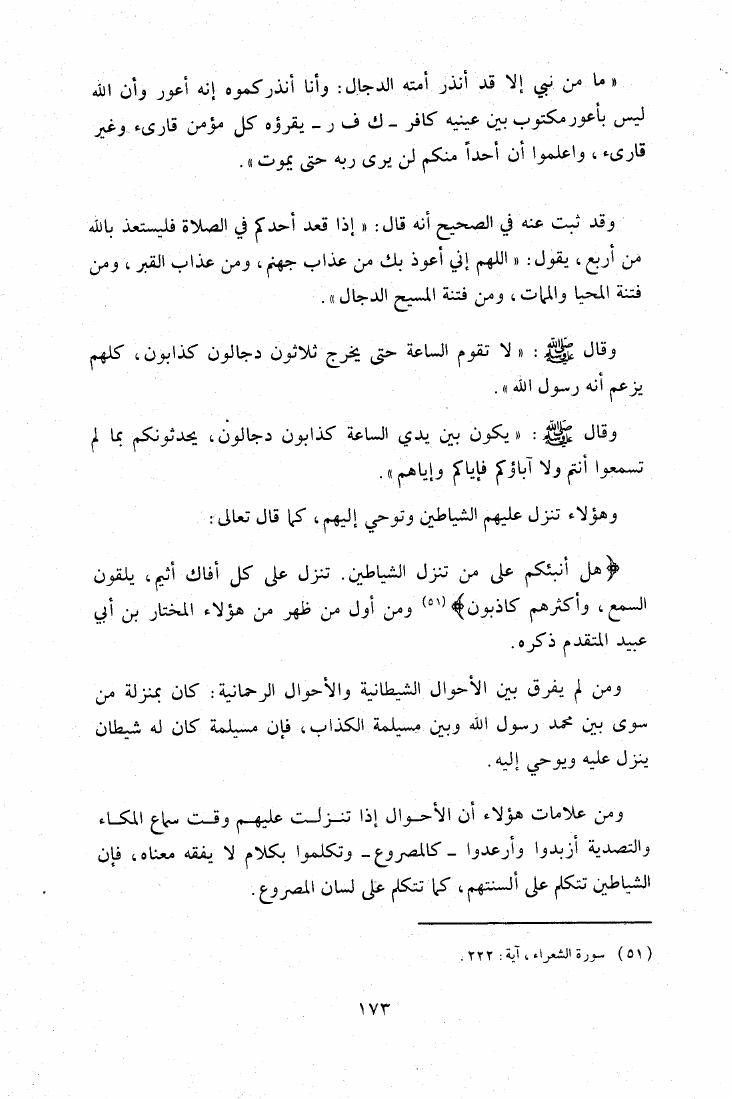 « ما من نبي إلا قد أنذر أمته الدجال: وأنا أنذركموه إنه أعور وأن الله
ليس بأعور مكتوب بين عينيه كافر - ك ف ر - يقرؤه كل مؤمن قارىء وغير
قارىء ، واعلموا أن أحداً منكم لن يرى ربه حتى يموت ».
وقد ثبت عنه في الصحيح أنه قال: « إذا قعد أحدكم في الصلاة فليستعذ بالله
من أربع ، يقول: « اللهم إني أعوذ بك من عذاب جهنم، ومن عذاب القبر ، ومن
فتنة المحيا والممات ، ومن فتنة المسيح الدجال ».
وقال ﷺ : « لا تقوم الساعة حتى يخرج ثلاثون دجالون كذابون، كلهم
يزعم أنه رسول الله ».
وقال ﷺ : « يكون بين يدي الساعة كذابون دجالون، يحدثونكم بما لم
تسمعوا أنتم ولا آباؤكم فإياكم وإياهم ».
وهؤلاء تنزل عليهم الشياطين وتوحي إليهم، كما قال تعالى:
﴿هل أنبئكم على من تنزل الشياطين. تنزل على كل أفاك أثيم، يلقون
السمع ، وأكثرهم كاذبون﴾ (٥١) ومن أول من ظهر من هؤلاء المختار بن أبي
عبيد المتقدم ذكره.
ومن لم يفرق بين الأحوال الشيطانية والأحوال الرحمانية: كان بمنزلة من
سوى بين محمد رسول الله وبين مسيلمة الكذاب، فإن مسيلمة كان له شيطان
ينزل عليه ويوحي إليه.
ومن علامات هؤلاء أن الأحـوال إذا تنـزلـت عليهـم وقـت سماع المكـاء
والتصدية أزبدوا وأرعدوا - كالمصروع - وتكلموا بكلام لا يفقه معناه، فإن
الشياطين تتكلم على ألسنتهم، كما تتكلم على لسان المصروع.
(٥١) سورة الشعراء ، آية: ٢٢٢.
١٧٣